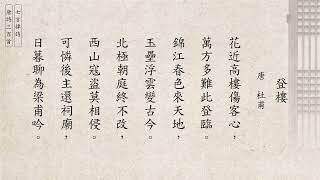 登樓
唐 杜甫
花近高樓傷客心，
萬方多難此登臨。
錦江春色來天地，
玉壘浮雲變古今。
北極朝庭終不改，
西山寇盜莫相侵。
可憐後主還祠廟，
日暮聊為梁甫吟。
七言律詩
唐詩三百首